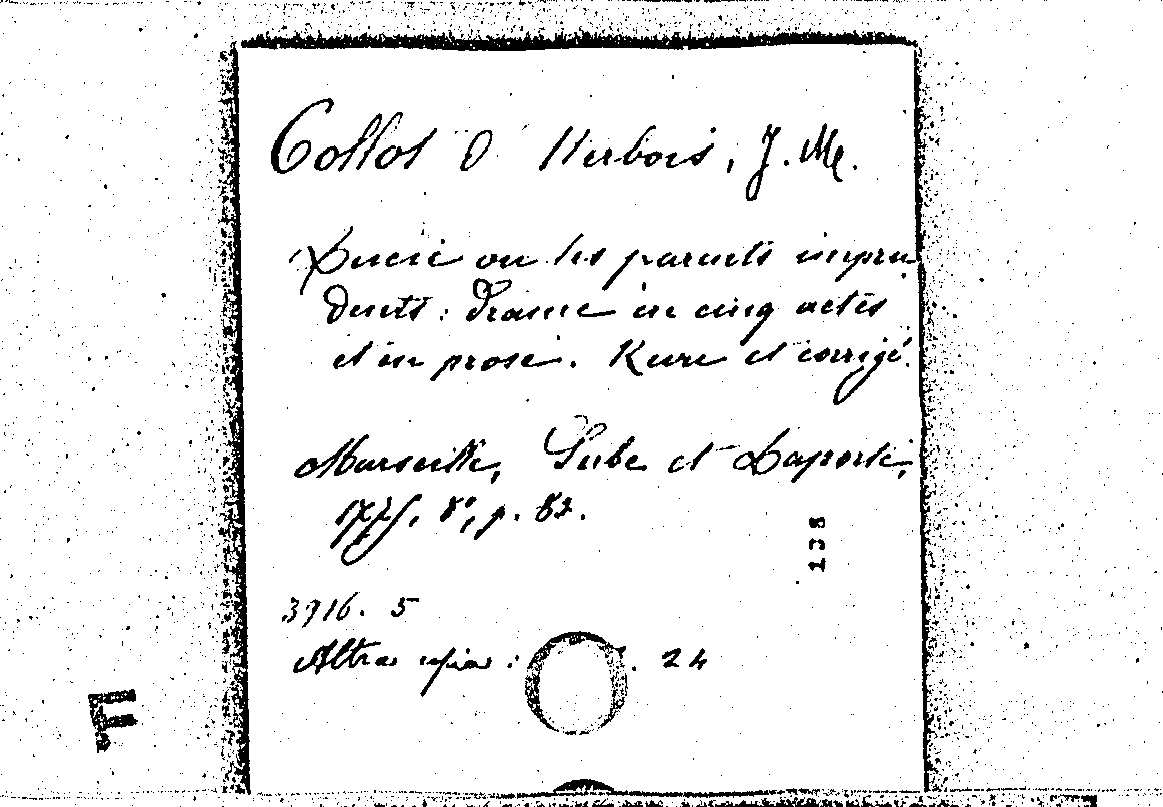 Collot d'Herbois, J. M.
Lucie ou les parents impru
dents: drame en cinq actes
et en prose. Revu et corrigé.
Marseille, Sube et Laporte,
1775. 8°, p. 82.
138
3716. 5
Altra copia: . 24
F